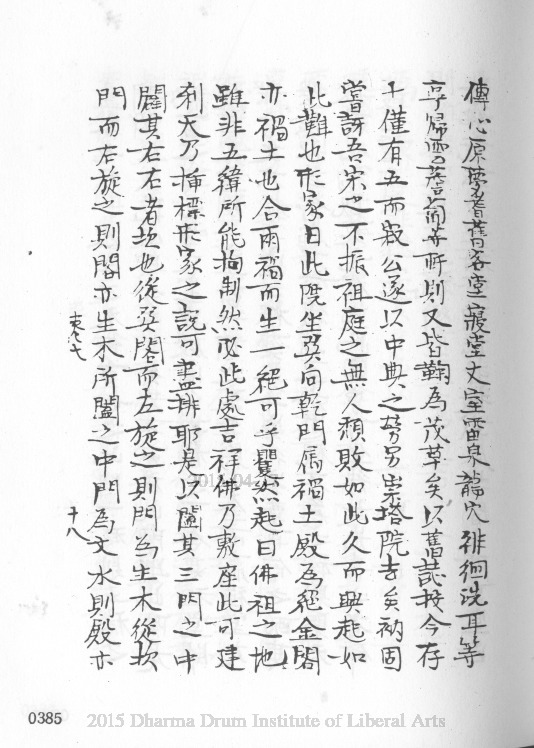 傳心原夢耆舊客堂寢堂丈室雷泉龍穴徘徊洗耳等
亭歸雲薝蔔等所則又皆鞠為茂草矣以舊誌挍今存
千僅有五而嶯公遂以中興之勞另崇塔院去矣衲固
嘗訝吾宗之不振祖庭之無人頹敗如此久而興起如
此難也形家曰此院坐巽向乾門屬禍土殿為絕金閣
亦禍土也合兩禍而生一絕可乎矍然起曰佛祖之地
雖非五緯所能拘制然必此處吉祥佛乃敷座此可建
剎天乃插標形家之說可盡排耶是以闔其三門之中
闢其右右者坎也從巽閣而左旋之則門為生木從坎
門而右旋之則閣亦生木所闔之中門為文水則殿亦
十八
0385 2015 Dharma Drum Institute of Liberal Arts